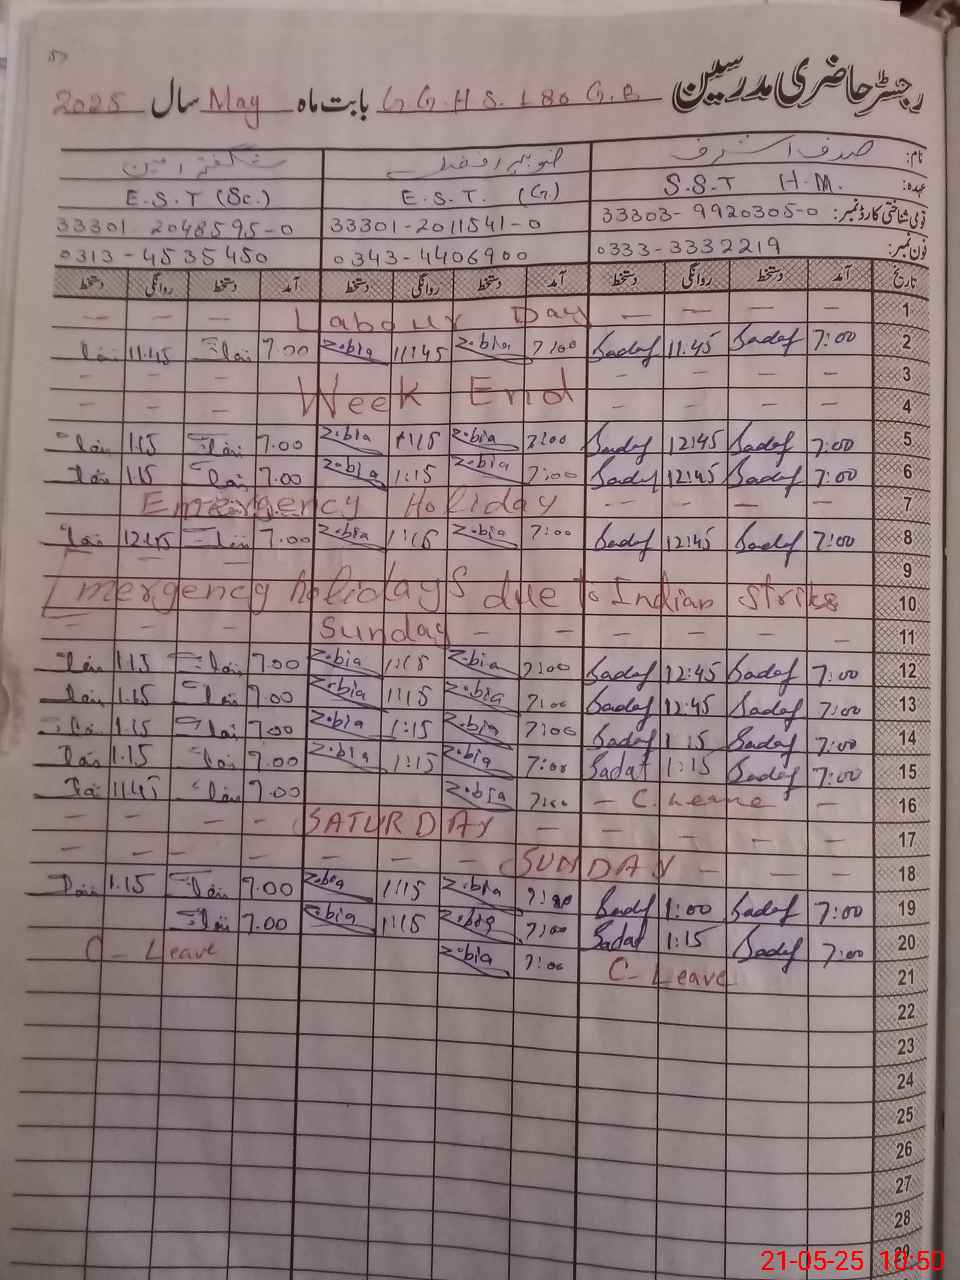 رجسٹر حاضری مدرسین G G.H S. 180 G.B بابت ماہ May سال 2025
نام: صدف اشرف
عہدہ: S.S.T H.M. E.S.T. (G) E.S.T (Sc.)
قومی شناختی کارڈ نمبر: 33303-9920305-0 33301-2011541-0 33301-2048595-0
فون نمبر: 0333-3332219 0343-4406900 0313-4535450
تاریخ آمد دستخط روانگی دستخط آمد دستخط روانگی دستخط آمد دستخط روانگی دستخط
1 — — — Labour Day — — —
2 7:00 Sadaf 11:45 Sadaf 7:00 Zobia 11:45 Zobia 7.00 11.45
3 — — — —
4 — — Week End — — —
5 7:00 Sadaf 12:45 Sadaf 7:00 Zobia 1:15 Zobia 7.00 1:15
6 7:00 Sadaf 12:45 Sadaf 7:00 Zobia 1:15 Zobia 7.00 1:15
7 Emergency Holiday — — — —
8 7:00 Sadaf 12:45 Sadaf 7:00 Zobia 1:15 Zobia 7.00 12:45
9
10 Emergency holidays due to Indian strike
11 Sunday — — — —
12 7:00 Sadaf 12:45 Sadaf 7:00 Zobia 1:15 Zobia 7.00 1:15
13 7:00 Sadaf 12:45 Sadaf 7:00 Zobia 1:15 Zobia 7.00 1.15
14 7:00 Sadaf 1:15 Sadaf 7:00 Zobia 1:15 Zobia 7.00 1.15
15 7:00 Sadaf 1:15 Sadaf 7:00 Zobia 1:15 Zobia 7.00 1.15
16 — C. Leave — 7:00 Zobia 7.00 11.45
17 — — — — SATURDAY — — — —
18 — — — — SUNDAY — — —
19 7:00 Sadaf 1:00 Sadaf 7:00 Zobia 1:15 Zobia 7.00 1.15
20 7:00 Sadaf 1:15 Sadaf 7:00 Zobia 1:15 Zobia 7.00
21 C-Leave 7:00 Zobia C-Leave
22
23
24
25
26
27
28
29
21-05-25 10:50